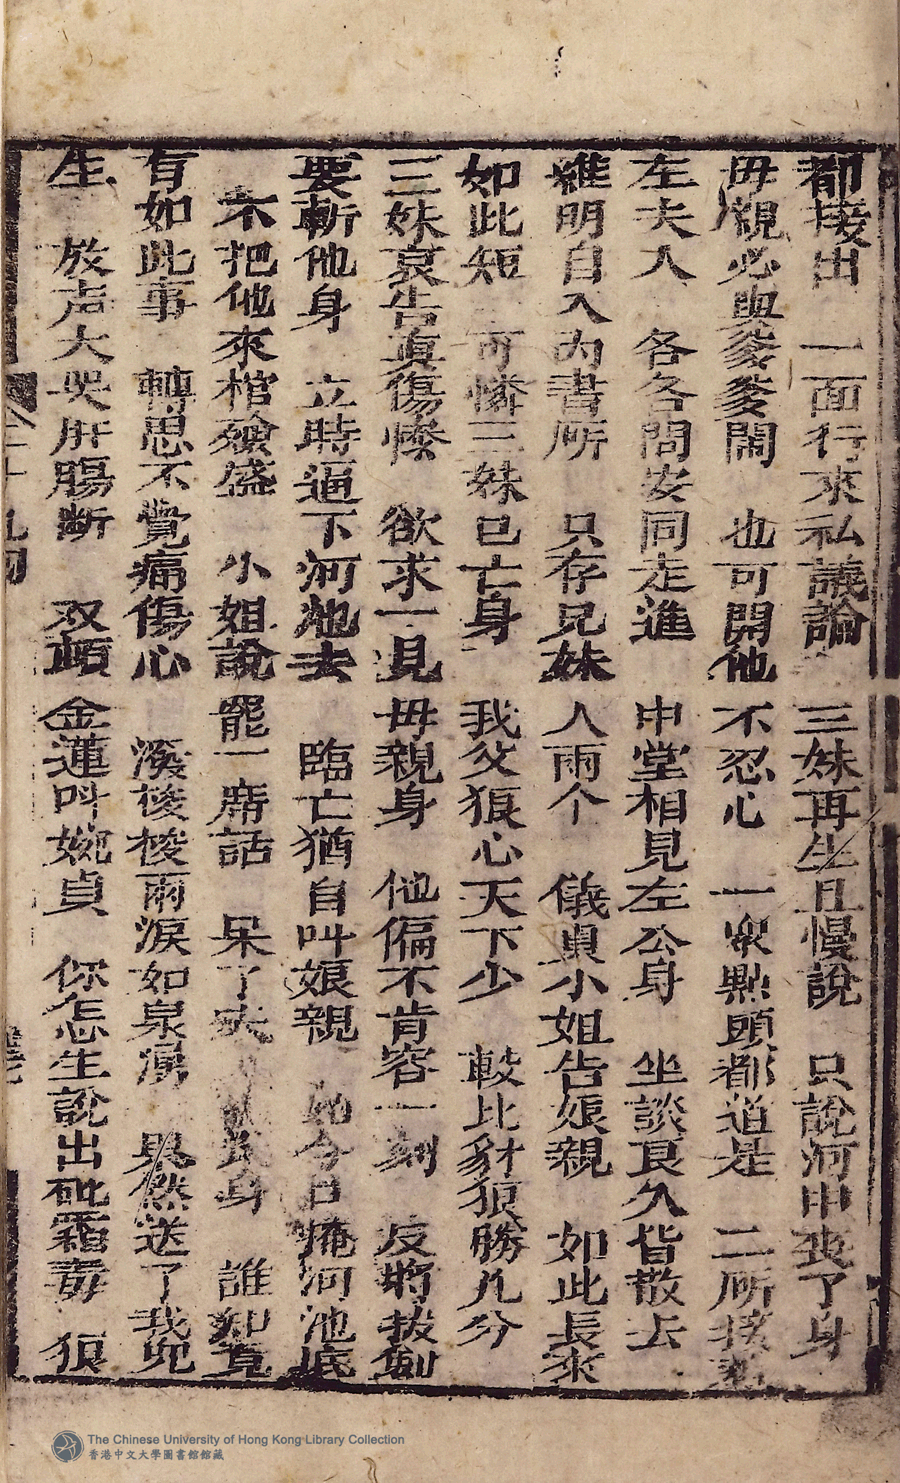 都接出　一面行來私議論　三妹再生且慢說　只說河中喪了身
毋親必與爹爹鬧　也可開他不忍心　一衆點頭都道是　二所接
左夫人　各各問安同走進　中堂相見左公身　坐談良久皆散去
維明自入內書房　只存兄妹人兩个　儀貞小姐告娘親　如此長來
如此短　可憐三妹已亡身　我父狠心天下少　較比豺狼勝几分
三妹哀告眞傷慘　欲求一見毋親身　他偏不肯容一刻　反將拔劍
要斬他身　立時逼下河池去　臨亡猶自叫娘親　今日掩河池底
不把他來棺殮盛　小姐說罷一席話　呆了夫　身　誰知竟
有如此事　轉思不覺痛傷心　潑梭梭雨淚如泉湧　果然送了我兒
生　放声大哭肝腸断　双頓金蓮叫婉貞　你怎生說出砒霜毒　狠
The Chinese University of Hong Kong Library Collection
香港中文大學圖書館館藏